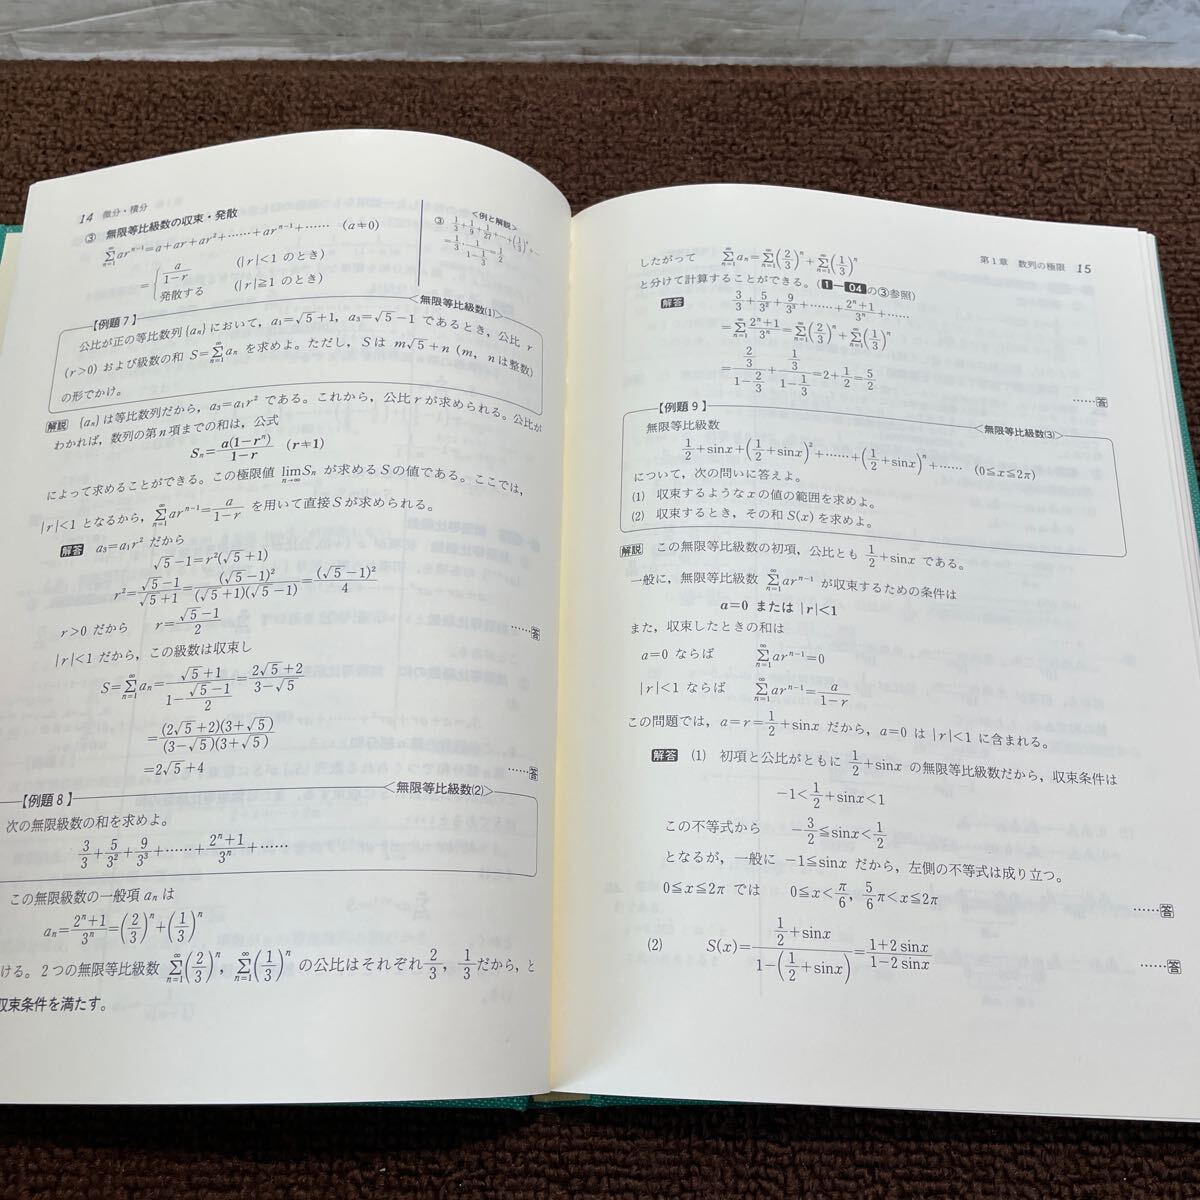 14 微分・積分
③ 無限等比級数の収束・発散
∞Σn=1 arⁿ⁻¹=a+ar+ar²+……+arⁿ⁻¹+…… (a≠0)
={ a/(1-r) (|r|<1 のとき)
発散する (|r|≧1 のとき)
<例と解説>
③ 1/3+1/9+1/27+…+(1/3)ⁿ+…
=1/3・1/(1-1/3)=1/2
【例題7】 <無限等比級数(1)>
公比が正の等比数列{aₙ}において，a₁=√5+1，a₃=√5-1 であるとき，公比 r
(r>0) および級数の和 S=∞Σn=1 aₙ を求めよ。ただし，Sは m√5+n (m，nは整数)
の形でかけ。
解説 {aₙ}は等比数列だから，a₃=a₁r² である。これから，公比rが求められる。公比が
わかれば，数列の第n項までの和は，公式
Sₙ=a(1-rⁿ)/(1-r) (r≠1)
によって求めることができる。この極限値 lim n→∞ Sₙ が求めるSの値である。ここでは，
|r|<1 となるから，∞Σn=1 arⁿ⁻¹=a/(1-r) を用いて直接Sが求められる。
解答 a₃=a₁r² だから
√5-1=r²(√5+1)
r²=(√5-1)/(√5+1)=(√5-1)²/((√5+1)(√5-1))=(√5-1)²/4
r>0 だから r=(√5-1)/2 ……答
|r|<1 だから，この級数は収束し
S=∞Σn=1 aₙ=(√5+1)/(1-(√5-1)/2)=(2√5+2)/(3-√5)
=(2√5+2)(3+√5)/((3-√5)(3+√5))
=2√5+4 ……答
【例題8】 <無限等比級数(2)>
次の無限級数の和を求めよ。
3/3+5/3²+9/3³+……+(2ⁿ+1)/3ⁿ+……
この無限級数の一般項 aₙ は
aₙ=(2ⁿ+1)/3ⁿ=(2/3)ⁿ+(1/3)ⁿ
ける。2つの無限等比級数 ∞Σn=1(2/3)ⁿ，∞Σn=1(1/3)ⁿ の公比はそれぞれ2/3，1/3だから，と
収束条件を満たす。
第1章 数列の極限 15
したがって ∞Σn=1 aₙ=∞Σn=1(2/3)ⁿ+∞Σn=1(1/3)ⁿ
と分けて計算することができる。(1-04の③参照)
解答 3/3+5/3²+9/3³+……+(2ⁿ+1)/3ⁿ+……
=∞Σn=1 (2ⁿ+1)/3ⁿ=∞Σn=1(2/3)ⁿ+∞Σn=1(1/3)ⁿ
=(2/3)/(1-2/3)+(1/3)/(1-1/3)=2+1/2=5/2
……答
【例題9】 <無限等比級数(3)>
無限等比級数
1/2+sinx+(1/2+sinx)²+……+(1/2+sinx)ⁿ+…… (0≦x≦2π)
について，次の問いに答えよ。
(1) 収束するようなxの値の範囲を求めよ。
(2) 収束するとき，その和 S(x)を求めよ。
解説 この無限等比級数の初項，公比とも 1/2+sinx である。
一般に，無限等比級数 ∞Σn=1 arⁿ⁻¹ が収束するための条件は
a=0 または |r|<1
また，収束したときの和は
a=0 ならば ∞Σn=1 arⁿ⁻¹=0
|r|<1 ならば ∞Σn=1 arⁿ⁻¹=a/(1-r)
この問題では，a=r=1/2+sinx だから，a=0 は |r|<1 に含まれる。
解答 (1) 初項と公比がともに 1/2+sinx の無限等比級数だから，収束条件は
-1<1/2+sinx<1
この不等式から -3/2≦sinx<1/2
となるが，一般に -1≦sinx だから，左側の不等式は成り立つ。
0≦x≦2π では 0≦x<π/6，5/6π<x≦2π ……答
(2) S(x)=(1/2+sinx)/(1-(1/2+sinx))=(1+2sinx)/(1-2sinx) ……答